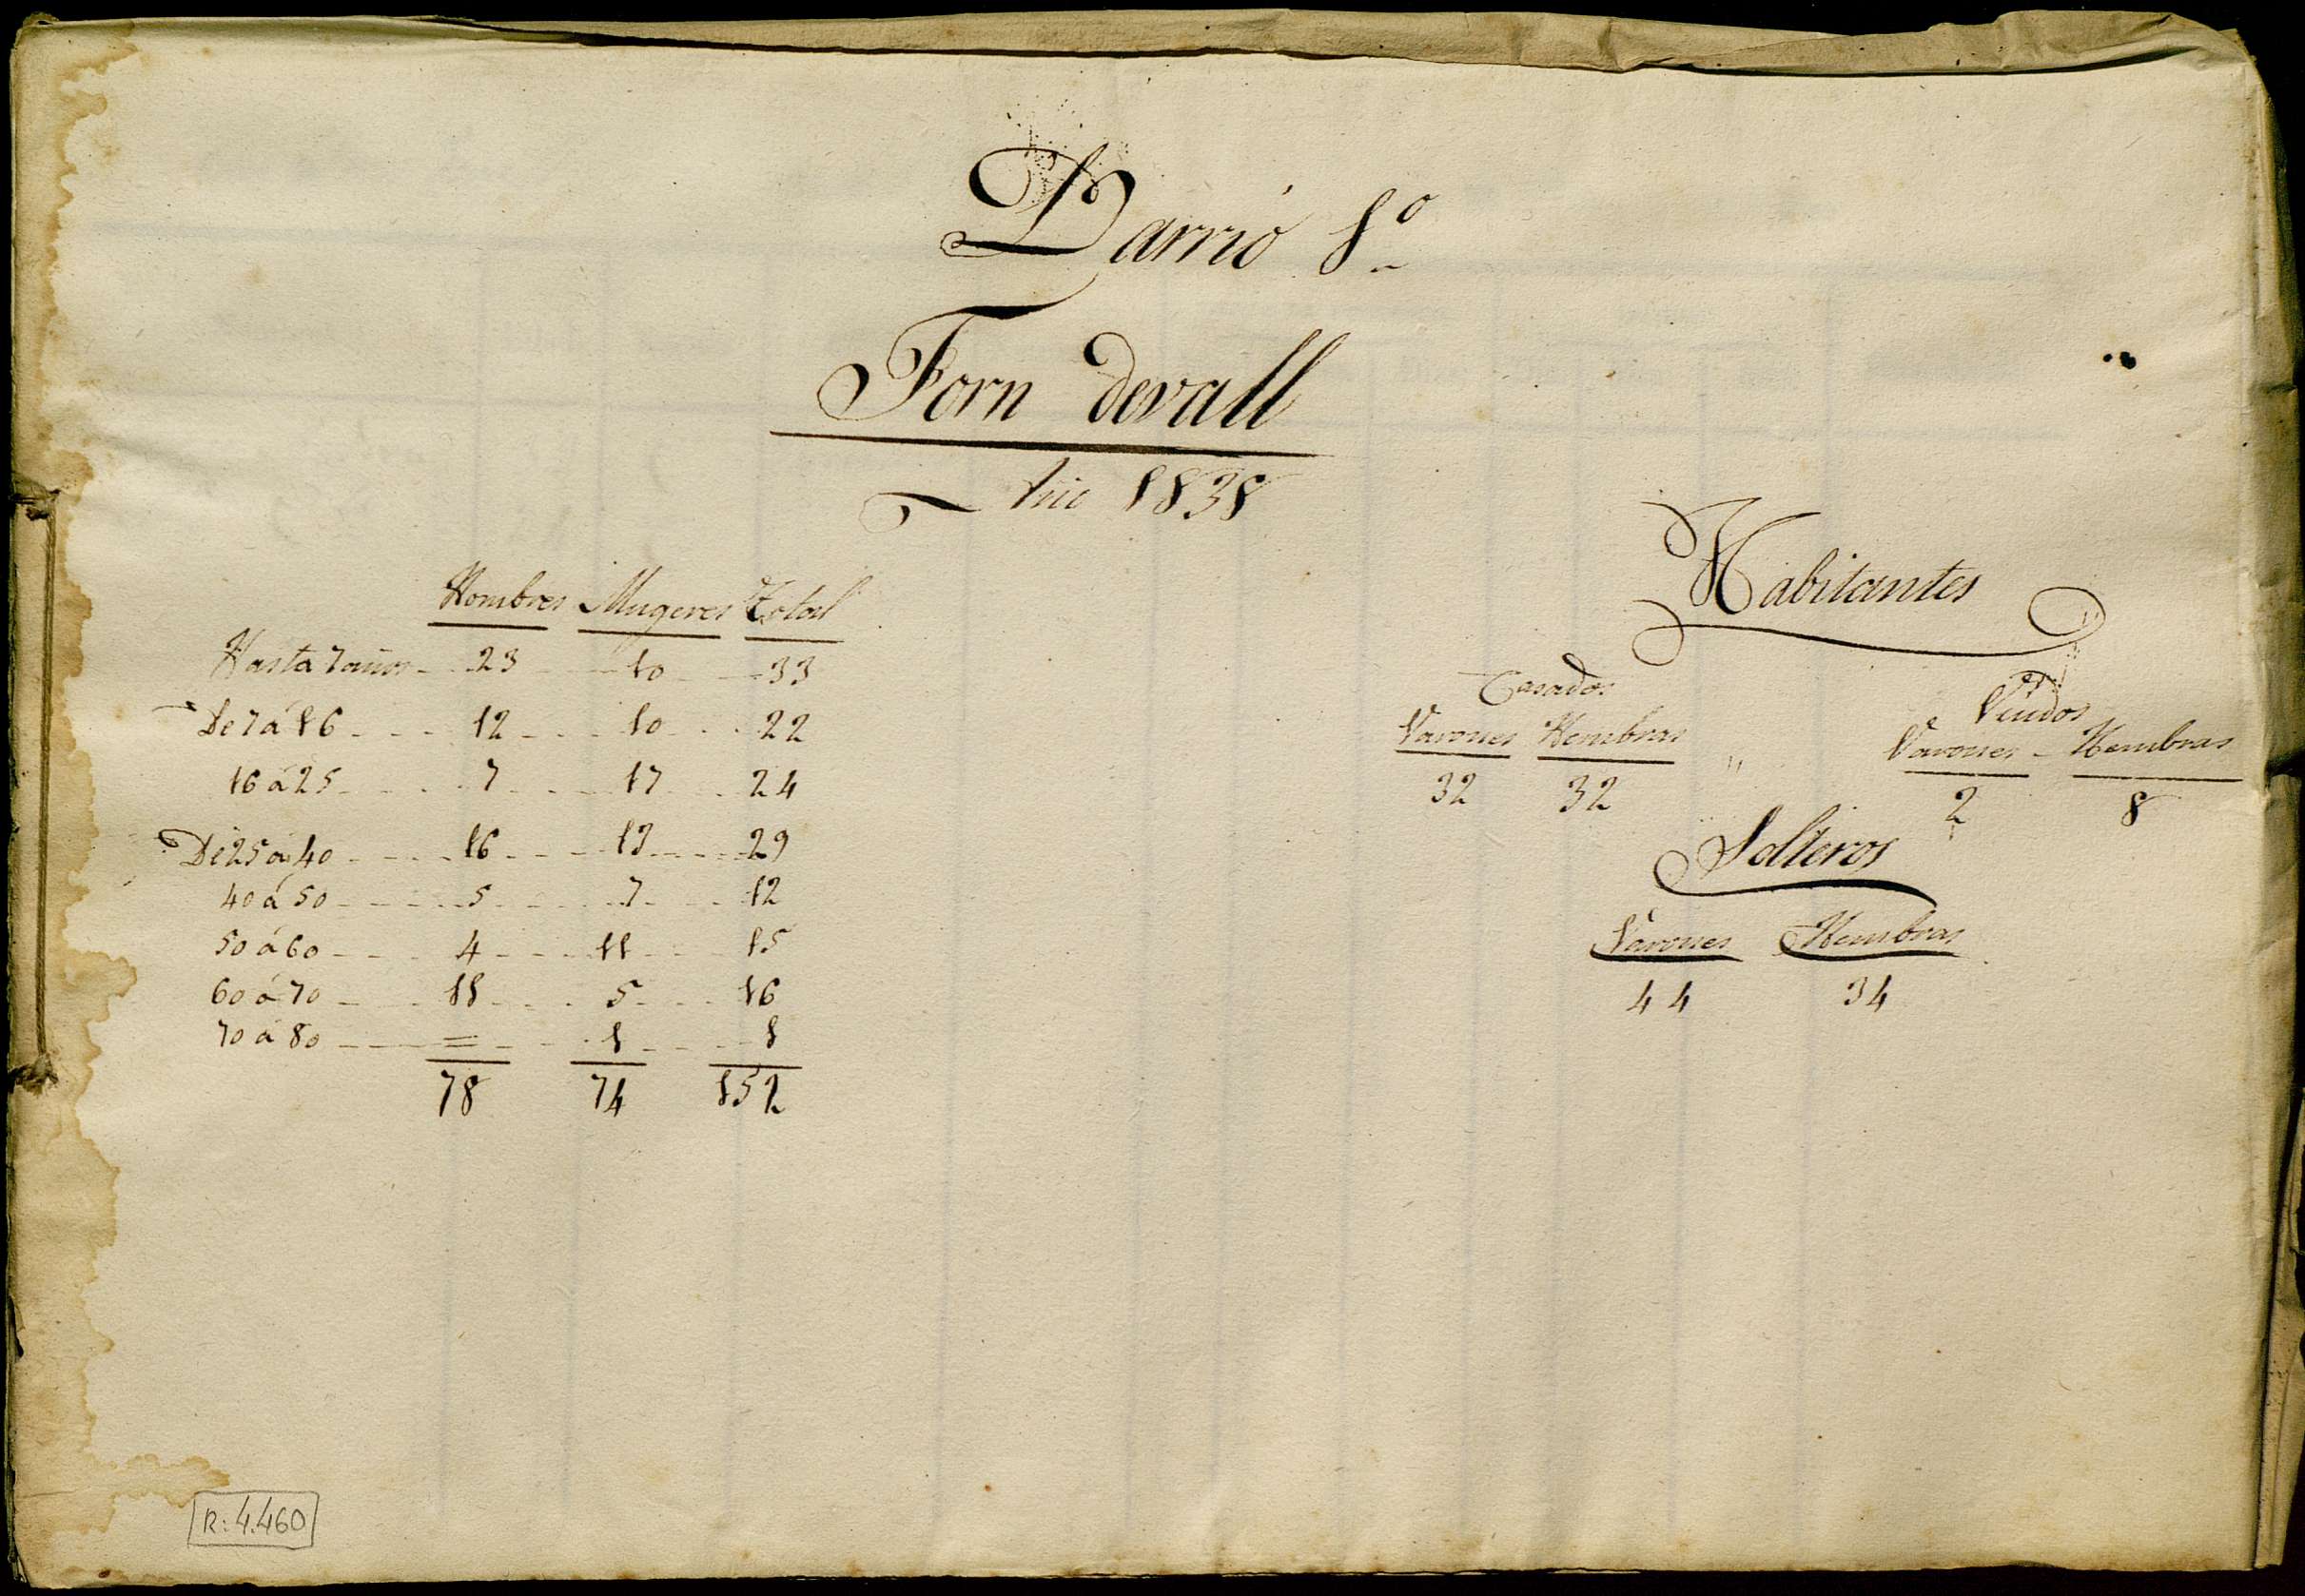 Barrió 1º
Forn devall
Año 1838
Hombres Mugeres Total
Hasta 7 años 23 10 33
De 7 á 16 12 10 22
16 á 25 7 17 24
De 25 á 40 16 13 29
40 á 50 5 7 12
50 á 60 4 11 15
60 á 70 11 5 16
70 á 80 = 1 1
78 74 152
Habitantes
Casados Viudos
Varones Hembras " Varones Hembras
32 32 2 8
Solteros
Varones Hembras
44 34
R: 4.460